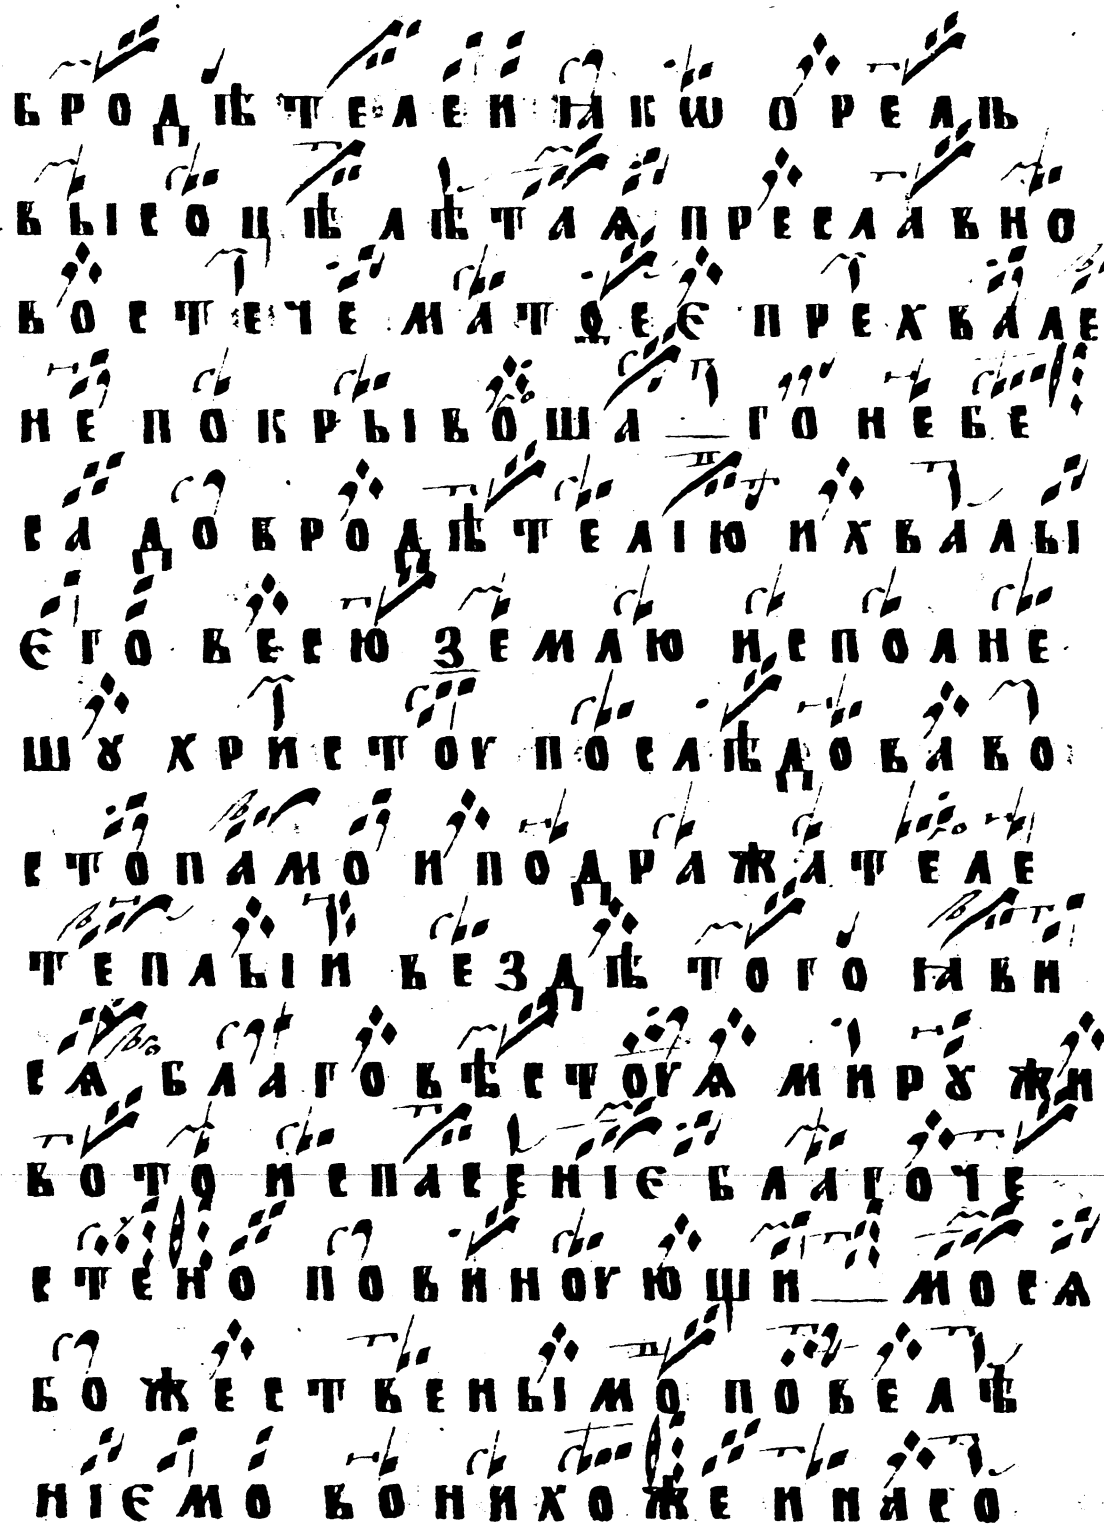 БРОДѢТЕЛЕИ ꙖКѠ ОРЕЛЪ
ВЫСОЦѢ ЛѢТАѦ ПРЕСЛАВНО
ВОСТЕЧЕ МАТѲЕЄ ПРЕХВАЛЕ
НЕ ПОКРЫВОША ГО НЕБЕ
СА ДОБРОДѢТЕЛІЮ И ХВАЛЫ
ЄГО ВЕСЮ ЗЕМЛЮ ИСПОЛНЕ
ШꙊ ХРИСТОУ ПОСЛѢДОВАВО
СТОПАМО И ПОДРАЖАТЕЛЕ
ТЕПЛЫИ ВЕЗДѢ ТОГО ꙖВИ
СѦ БЛАГОВѢСТОУѦ МИРꙊ ЖИ
ВОТО И СПАСЕНІЄ БЛАГОЧЕ
СТЕНО ПОВИНОУЮЩИМОСѦ
БОЖЕСТВЕНЫМО ПОВЕЛѢ
НІЄМО ВО НИХОЖЕ И НАСО